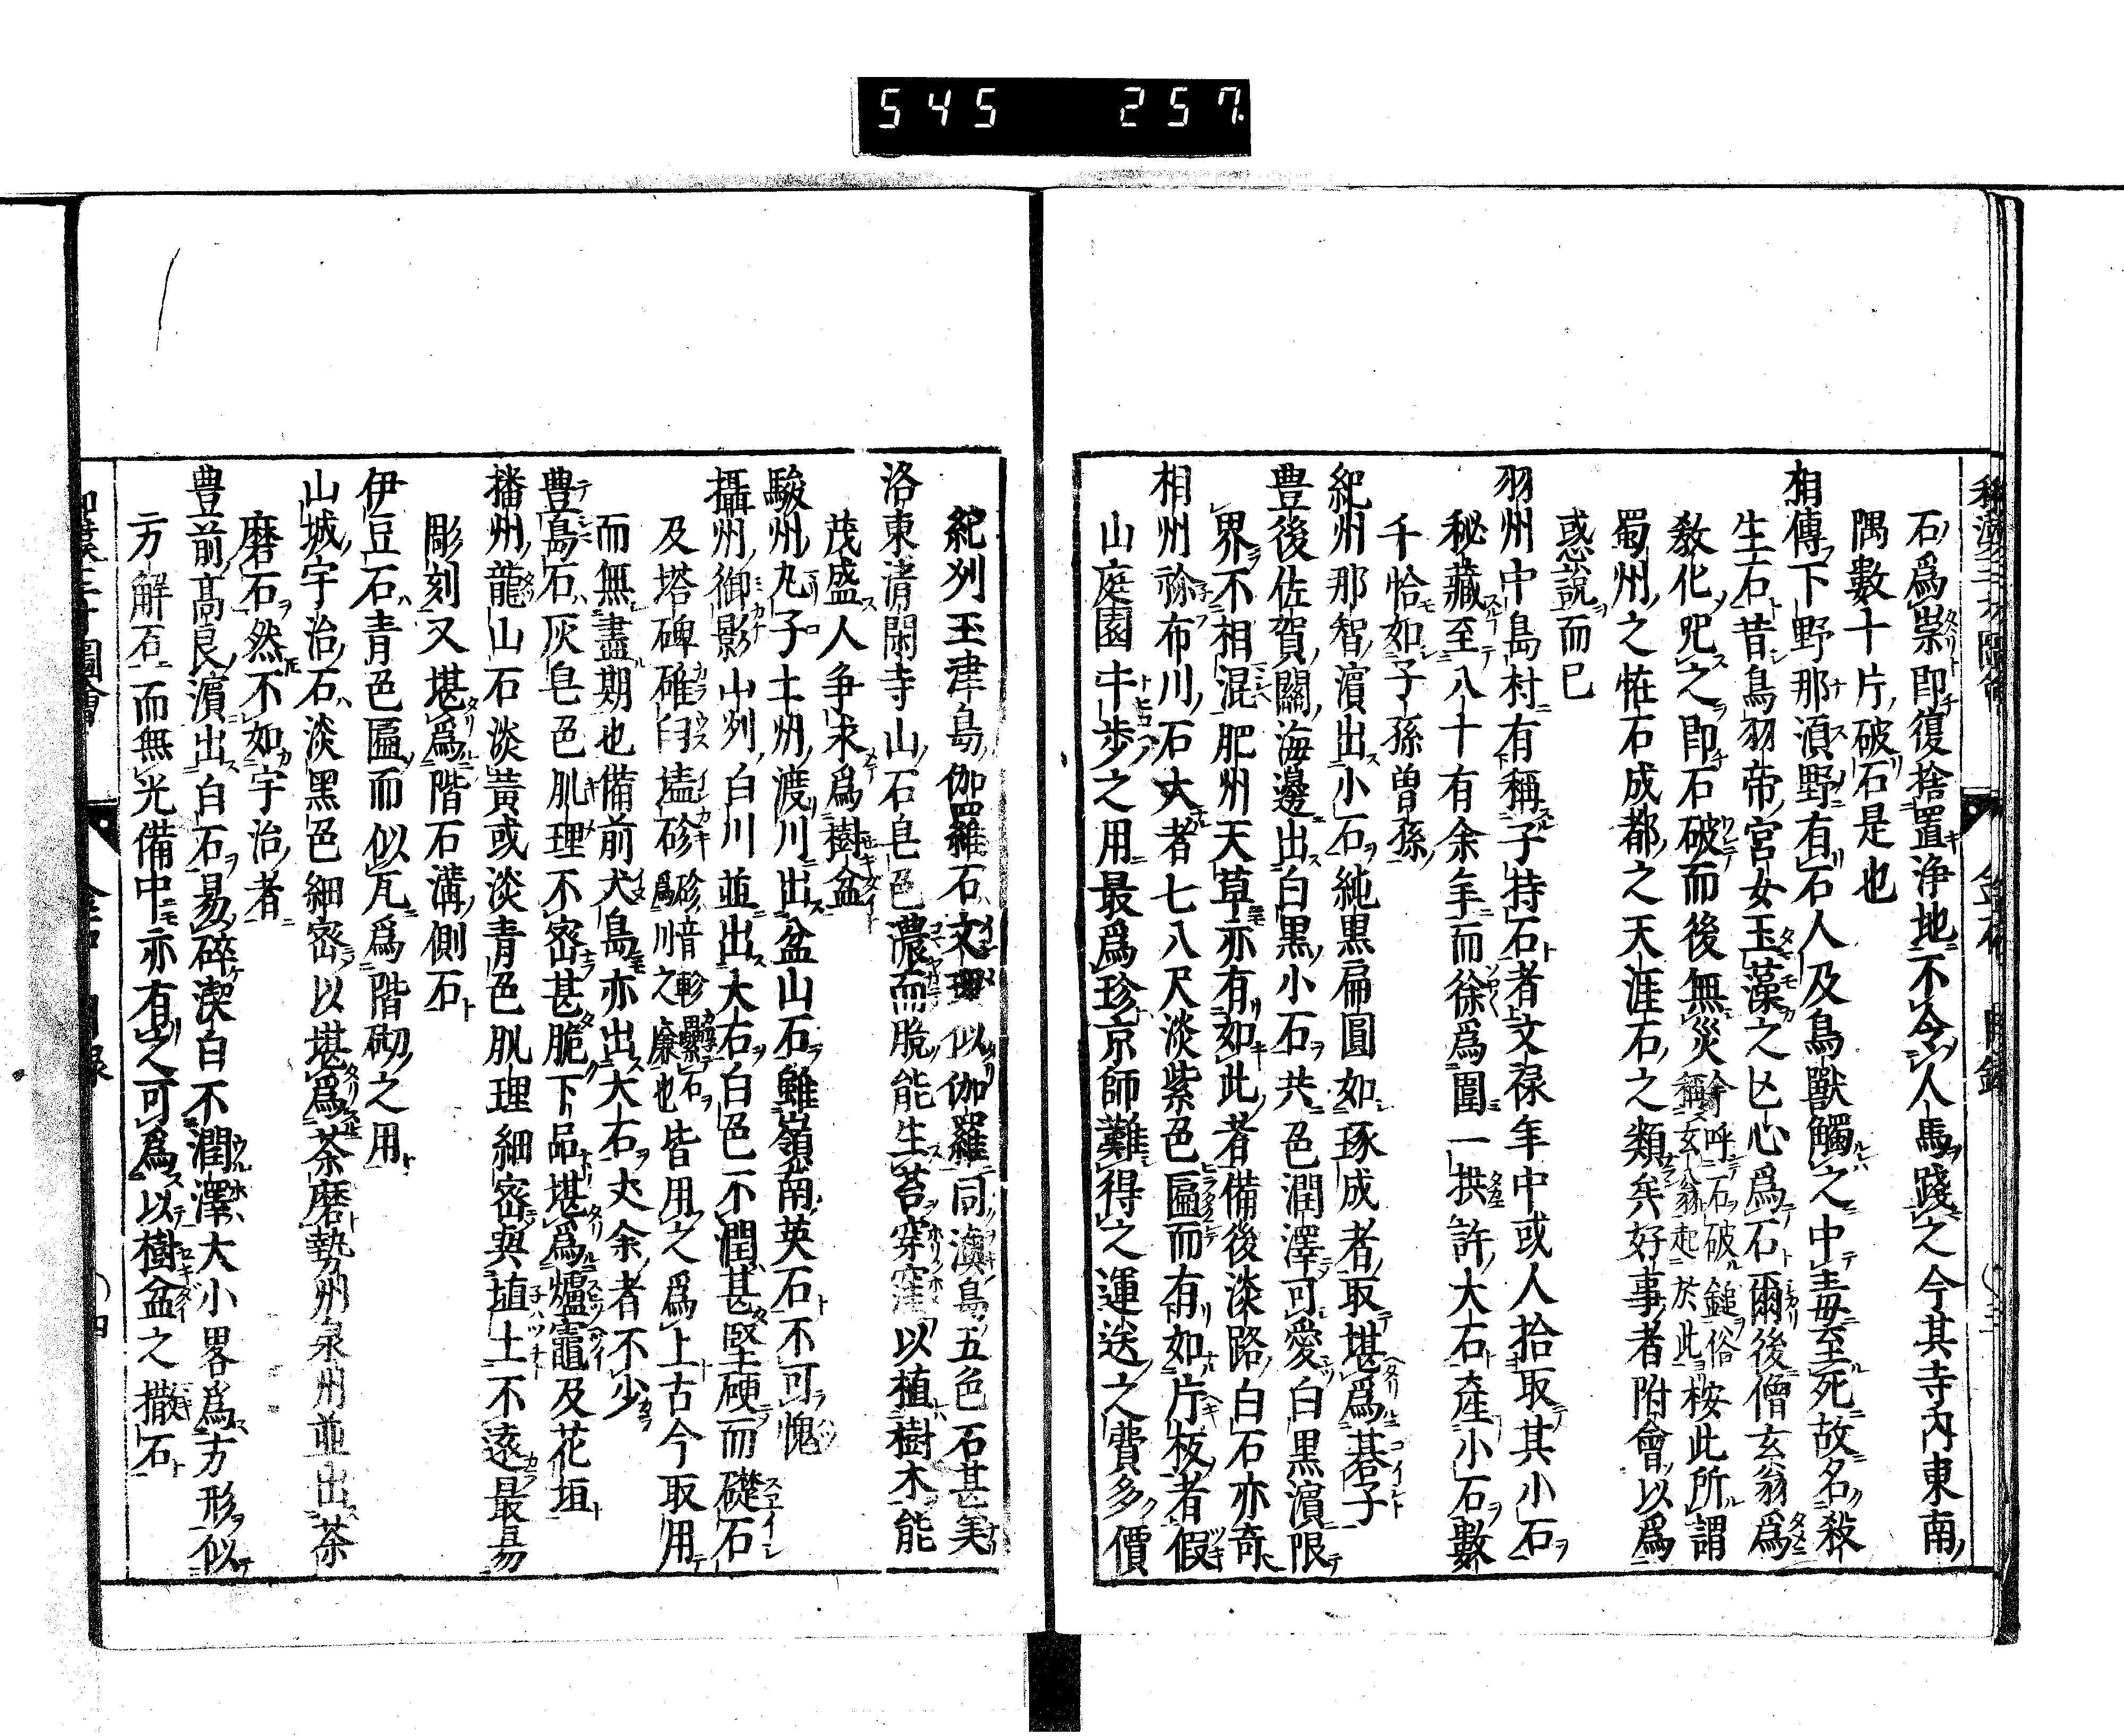 545 257
石爲祟即復捨置浄地不令人馬踐之今其寺內東南
隅數十片破石是也
相傳下野那須野有石人及鳥獸觸之中毒至死故名殺
生石昔鳥羽帝宮女玉藻之亡心爲石爾後僧玄翁爲
教化咒之即石破而後無災
於今呼石破鎚俗
稱玄翁起於此
桉此所謂
蜀州之恠石成都之天涯石之類矣好事者附會以爲
惑說而已
羽州中島村有稱子持石者文禄年中或人拾取其小石
秘藏至八十有余年而徐爲圍一拱許大石産小石數
千恰如子孫曽孫
紀州那智濵出小石純黒扁圓如琢成者取堪爲碁子
豊後佐賀關海邊出白黒小石共色潤澤可愛白黒濵限
界不相混肥州天草亦有如此者備後淡路白石亦奇
相州祢布川石大者七八尺淡紫色匾而有如片板者假
山庭園牛歩之用最爲珍京師難得之運送之費多價
紀州玉津島伽羅石文理似伽羅同澳島五色石甚美
洛東清閑寺山石皂色濃而脆能生苔穿窪以植樹木能
茂盛人争求爲樹盆
駿州丸子土州渡川出盆山石雖嶺南英石不可愧
攝州御影山州白川並出大石白色不潤甚堅硬而礎石
及塔碑碓臼𡏄
皆用之爲上古今取用
而無盡期也備前犬島亦出大石丈余者不少
豊島石灰皂色肌理不宻甚脆下品堪爲爐竈及花垣
播州龍山石淡黃或淡青色肌理細宻與埴土不遠最易
彫刻又堪爲階石溝側石
伊豆石青色匾而似瓦爲階砌之用
山城宇治石淡黒色細宻以堪爲茶磨勢州泉州並出茶
磨石然不如宇治者
豊前高良濵出白石易碎潔白不潤澤大小畧爲方形似
方解石而無光備中亦有之可爲以樹盆之撒石